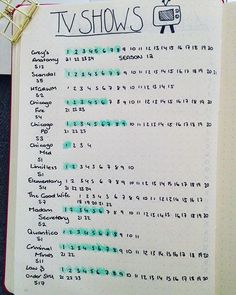 TV SHOWS
Grey's 1 2 3 4 5 6 7 8 9 10 11 12 13 14 15 16 17 18 19 20
Anatomy 21 22 23 24 SEASON 12
S13
Scandal 1 2 3 4 5 6 7 8 9 10 11 12 13 14 15 16 17 18 19 20 21
S5
HTGAWM 1 2 3 4 5
S2
Chicago 1 2 3 4 5 6 7 8 9 10 11 12 13 14 15 16 17 18 19 20
Fire 21 22 23
S4
Chicago 1 2 3 4 5 6 7 8 9 10 11 12 13 14 15 16 17 18 19 20
PD 21 22 23
S3
Chicago 1 2 3 4
Med
S1
Limitless 1 2 3 4 5 6 7 8 9 10
S1
Elementary 1 2 3 4 5 6 7 8 9 10 11 12 13 14 15 16 17 18 19 20
S4 21 22 23 24
The Good Wife 1 2 3 4 5 6 7 8 9 10 11 12 13 14 15 16
S7 17 18 19 20 21 22
Madam 1 2 3 4 5 6 7 8 9 10 11 12 13 14 15 16 17 18 19 20
Secretary 21 22
S2
Quantico 1 2 3 4 5 6 7 8 9 10 11
S1
Criminal 1 2 3 4 5 6 7 8 9 10 11 12 13 14 15 16 17 18 19 20
Minds 21 22
S11
Law & 1 2 3 4 5 6 7 8 9 10 11 12 13 14 15 16 17 18 19 20
Order SVU 21 22 23
S17